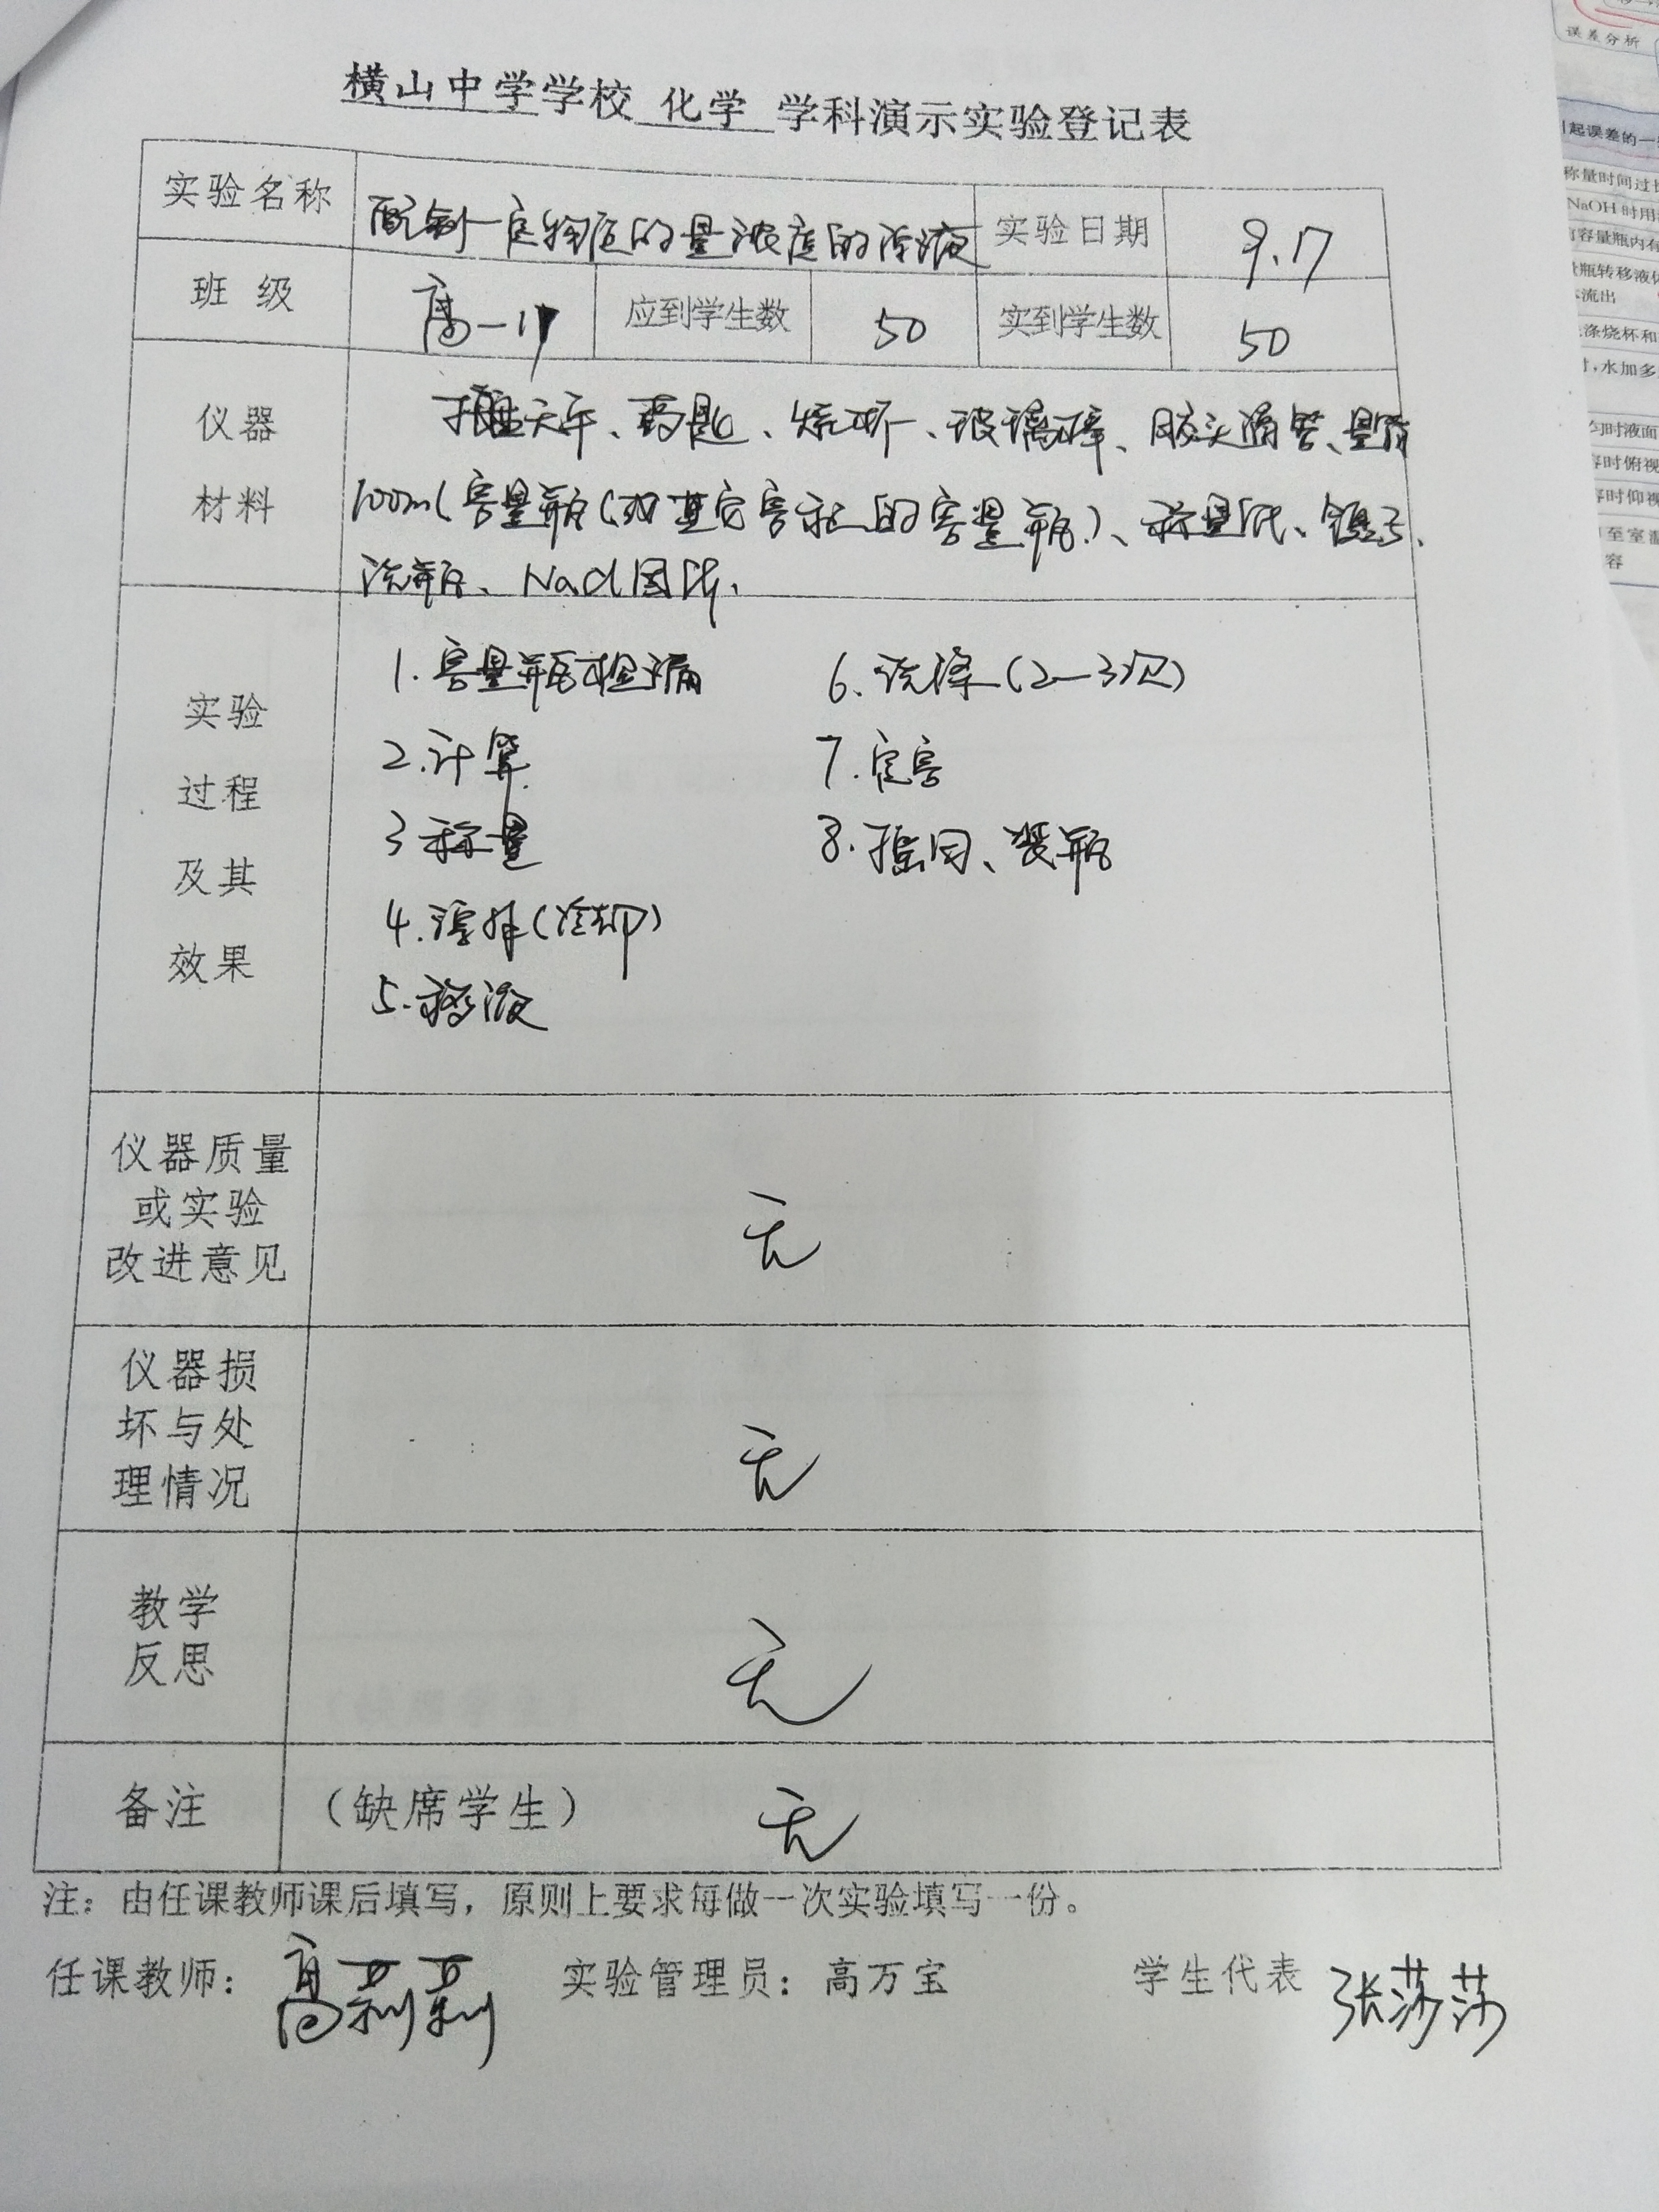 横山中学学校 化学 学科演示实验登记表
实验名称 配制一定物质的量浓度的溶液 实验日期 9.17
班级 高一 应到学生数 50 实到学生数 50
仪器
材料
托盘天平、药匙、烧杯、玻璃棒、胶头滴管、量筒
100ml容量瓶(或其它容积的容量瓶)、称量纸、镊子、
洗瓶、NaCl固体.
实验
过程
及其
效果
1.容量瓶检漏
2.计算
3称量
4.溶解(冷却)
5.移液
6.洗涤(2—3次)
7.定容
8.摇匀、装瓶
仪器质量
或实验
改进意见
无
仪器损
坏与处
理情况
无
教学
反思
无
备注 (缺席学生) 无
注：由任课教师课后填写，原则上要求每做一次实验填写一份。
任课教师：高莉莉 实验管理员：高万宝 学生代表 张莎莎
误差分析
起误差的一
称量时间过
NaOH时用
容量瓶内有
瓶转移液
流出
涤烧杯和
，水加多
匀时液面
容时俯视
容时仰视
至室温
容